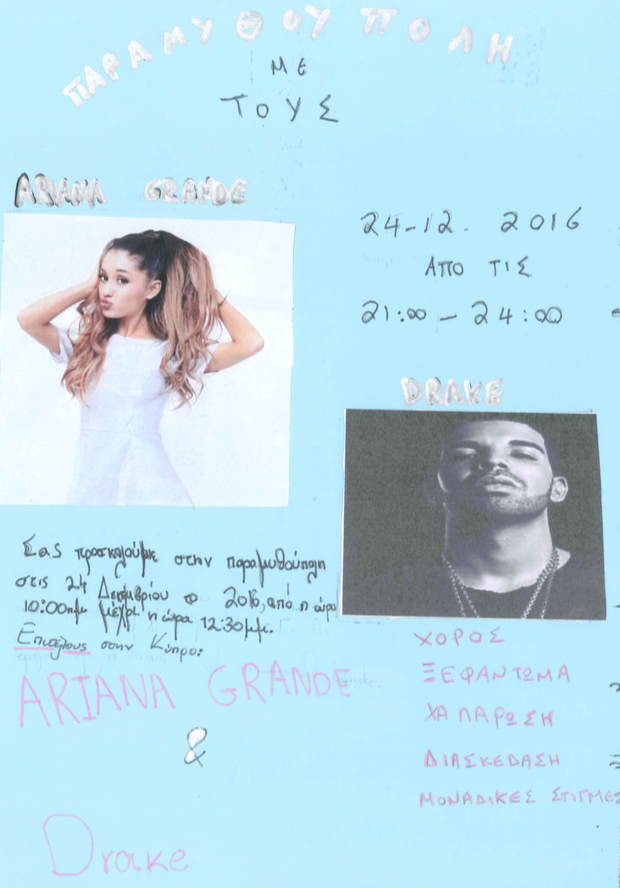 ΠΑΡΑΜΥΘΟΥΠΟΛΗ
ΜΕ
ΤΟΥΣ
ARIANA GRANDE
24-12. 2016
ΑΠΟ ΤΙΣ
21:00 - 24:00
DRAKE
Σας προσκαλούμε στην παραμυθούπολη
στις 24 Δεκεμβρίου 2016, από η ώρα
10:00πμ μέχρι η ώρα 12:30μμ.
Επιτέλους στην Κύπρο:
ARIANA GRANDE
&
Drake
ΧΟΡΟΣ
ΞΕΦΑΝΤΩΜΑ
ΧΑΛΑΡΩΣΗ
ΔΙΑΣΚΕΔΑΣΗ
ΜΟΝΑΔΙΚΕΣ ΣΤΙΓΜΕΣ